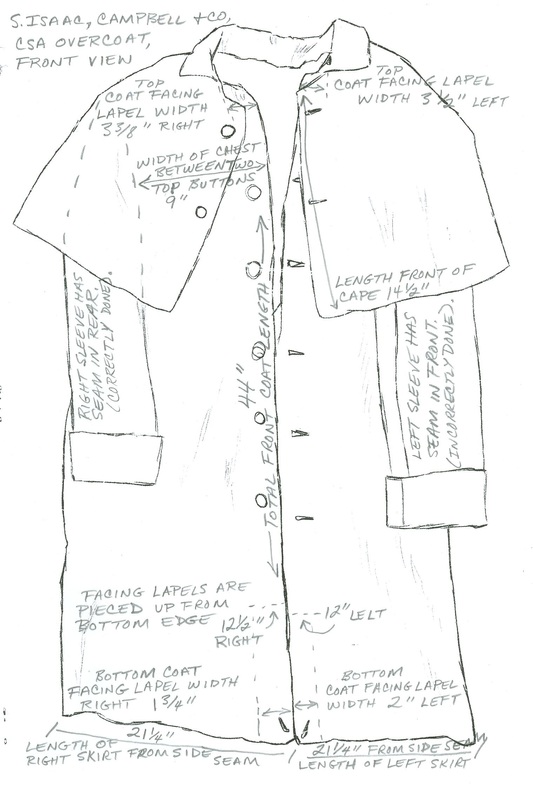 S. ISAAC, CAMPBELL + CO,
CSA OVERCOAT,
FRONT VIEW
TOP
COAT FACING
LAPEL WIDTH
3 5/8" RIGHT
TOP
COAT FACING LAPEL
WIDTH 3 1/2" LEFT
WIDTH OF CHEST
BETWEEN TWO
TOP BUTTONS
9"
LENGTH FRONT OF
CAPE 14 1/2"
RIGHT SLEEVE HAS
SEAM IN REAR.
(CORRECTLY DONE).
44"
TOTAL FRONT COAT LENGTH
LEFT SLEEVE HAS
SEAM IN FRONT.
(INCORRECTLY DONE).
FACING LAPELS ARE
PIECED UP FROM
BOTTOM EDGE
12 1/2"
RIGHT
12" LELT
BOTTOM COAT
FACING LAPEL WIDTH
RIGHT 1 3/4"
BOTTOM
COAT FACING LAPEL
WIDTH 2" LEFT
21 1/4"
LENGTH OF
RIGHT SKIRT FROM SIDE SEAM
21 1/4" FROM SIDE SEAM
LENGTH OF LEFT SKIRT